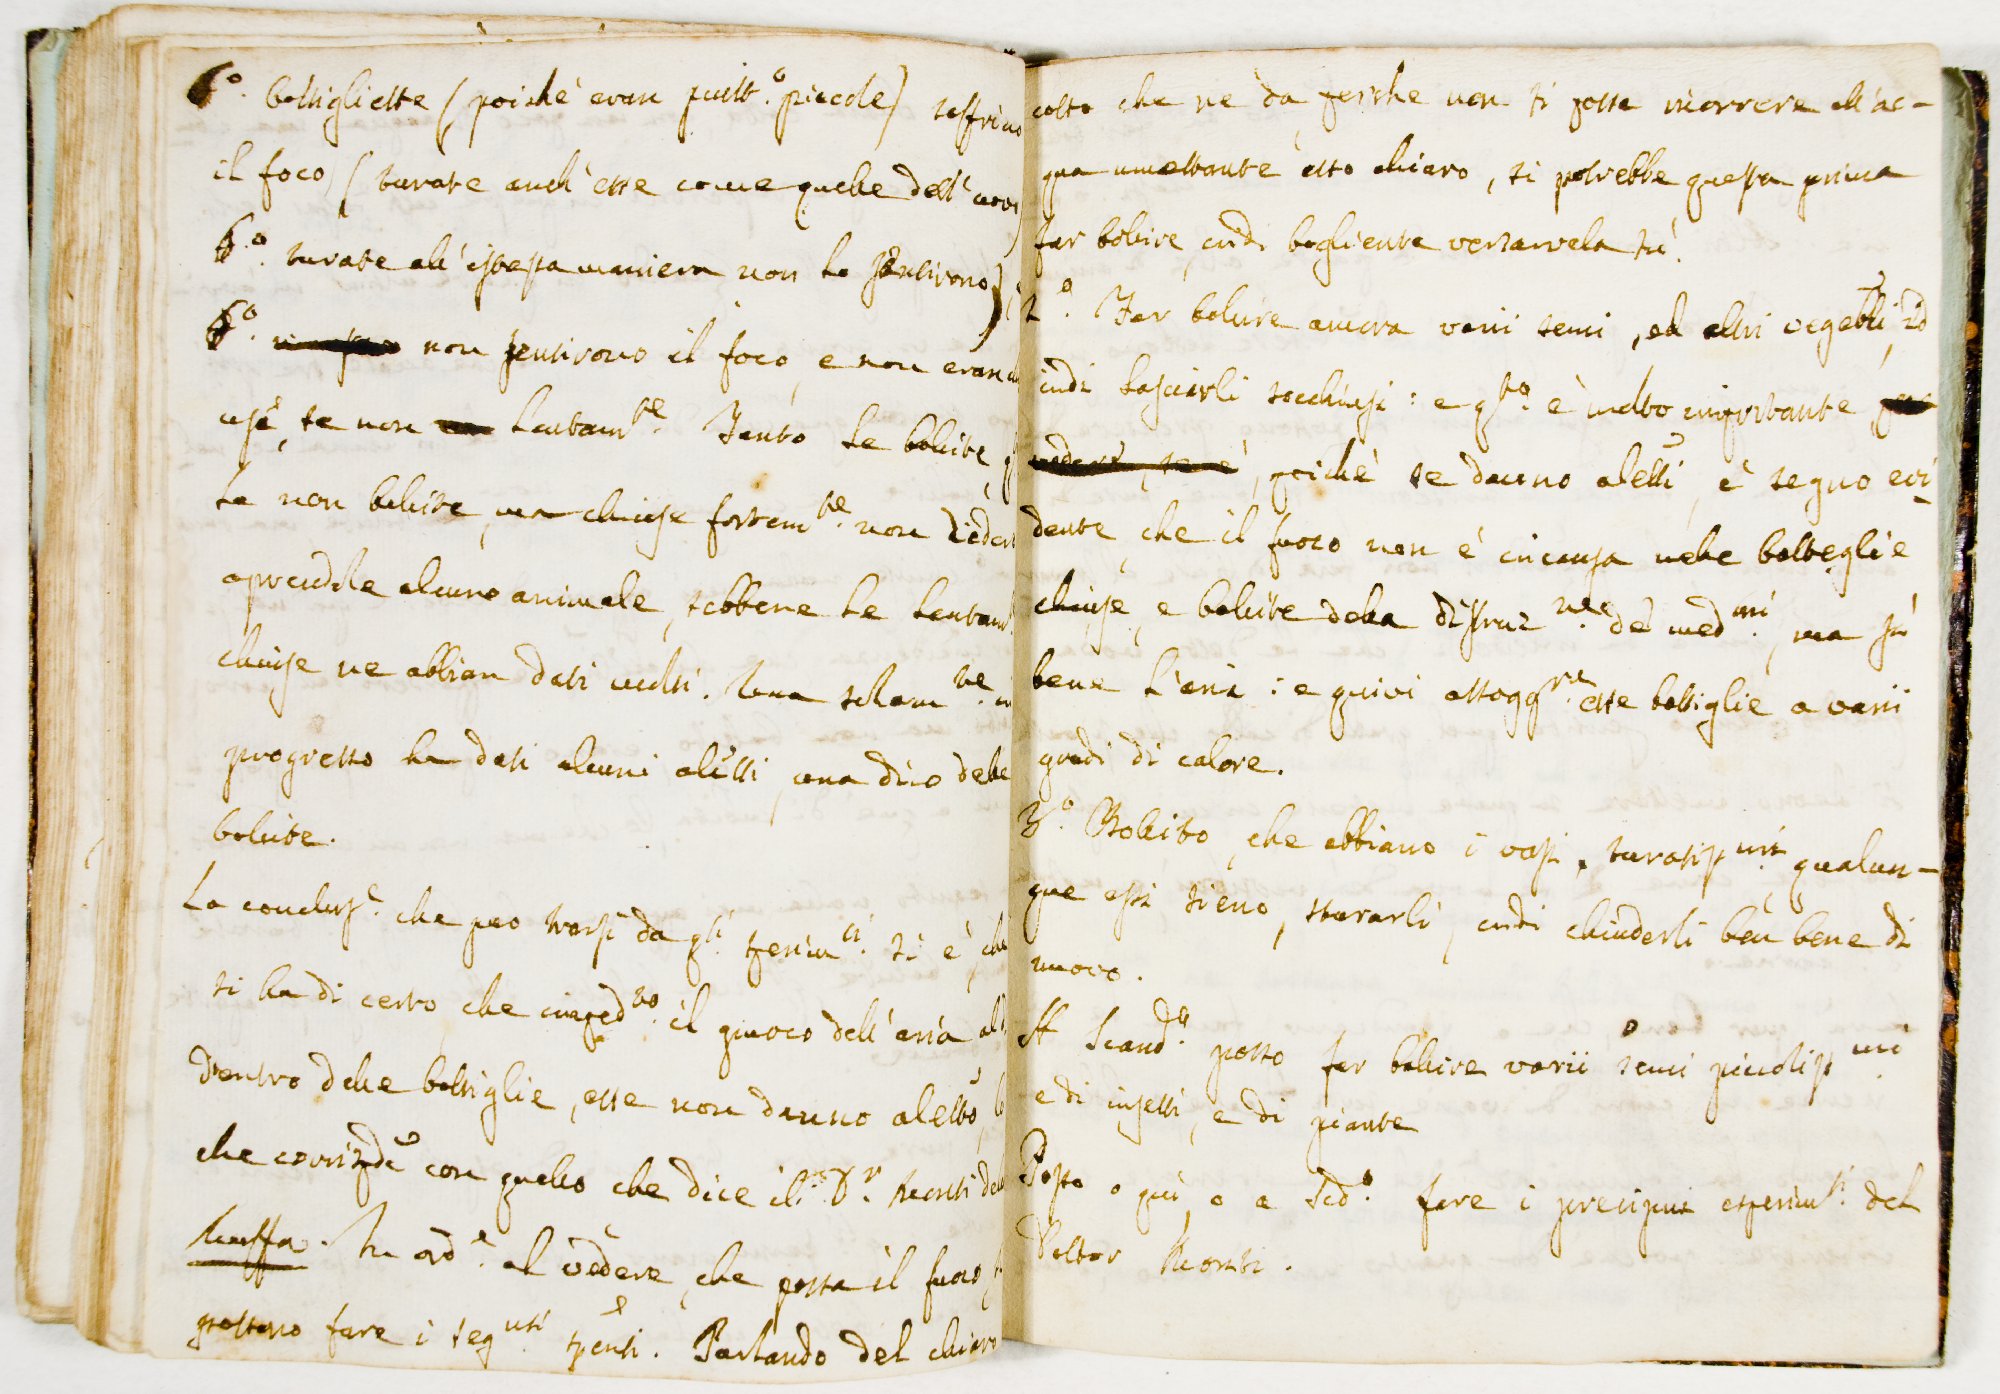 6.º bottigliette (poichè eran piutt.º piccole) soffrirno
il foco (turate anch'esse come quelle dell'
6.º turate all'istessa maniera non lo sentirono)
6.º non sentirono il foco, e non eran
se non lentam.te Tanto le bollite,
le non bollite, ma chiuse fortem.te non diedero
aprendole alcuno animale, sebbene le lentam.
chiuse ne abbian dati molti. Una solam.te in
progresso ha dati alcuni aletti, una dico delle
bollite.
La conclus.e che può trarsi da q.ti sperim.ti si è, che
si ha di certo che imped.to il giuoco dell'aria al di
dentro delle bottiglie, esse non danno aletto,
che corrisponde con quello che dice il D.r Monti della
Muffa. In ord.e al vedere, che possa il fuoco,
possono fare i seg.nti sp.enti. Parlando del chiaro
cotto che ne dà, perchè non si possa incorrere all'ac-
qua umettante esso chiaro, si potrebbe questa prima
far bollire, indi bogliente versarvela sù.
2.º Far bollire ancora varii semi, ed altri vegetbli, ed
indi lasciarli socchiusi: e q.sto è molto importante,
poichè se danno aletti, è segno evi
dente, che il fuoco non è in causa nelle bolteglie
chiuse, e bollite della distruz.ne de' med.mi, ma sì
bene l'aria: e quivi assogg.re esse bottiglie a varii
gradi di calore.
3.º Bollito, che abbiano i vasi, turatiss.mi qualun-
que essi sieno, sturarli, indi chiuderli ben bene di
nuovo.
A Scand.o posso far bollire varii semi piccoliss.mi
e di insetti, e di piante
Posso o quì, o a Scd.º fare i precipui esperim.ti del
Dottor Monti.